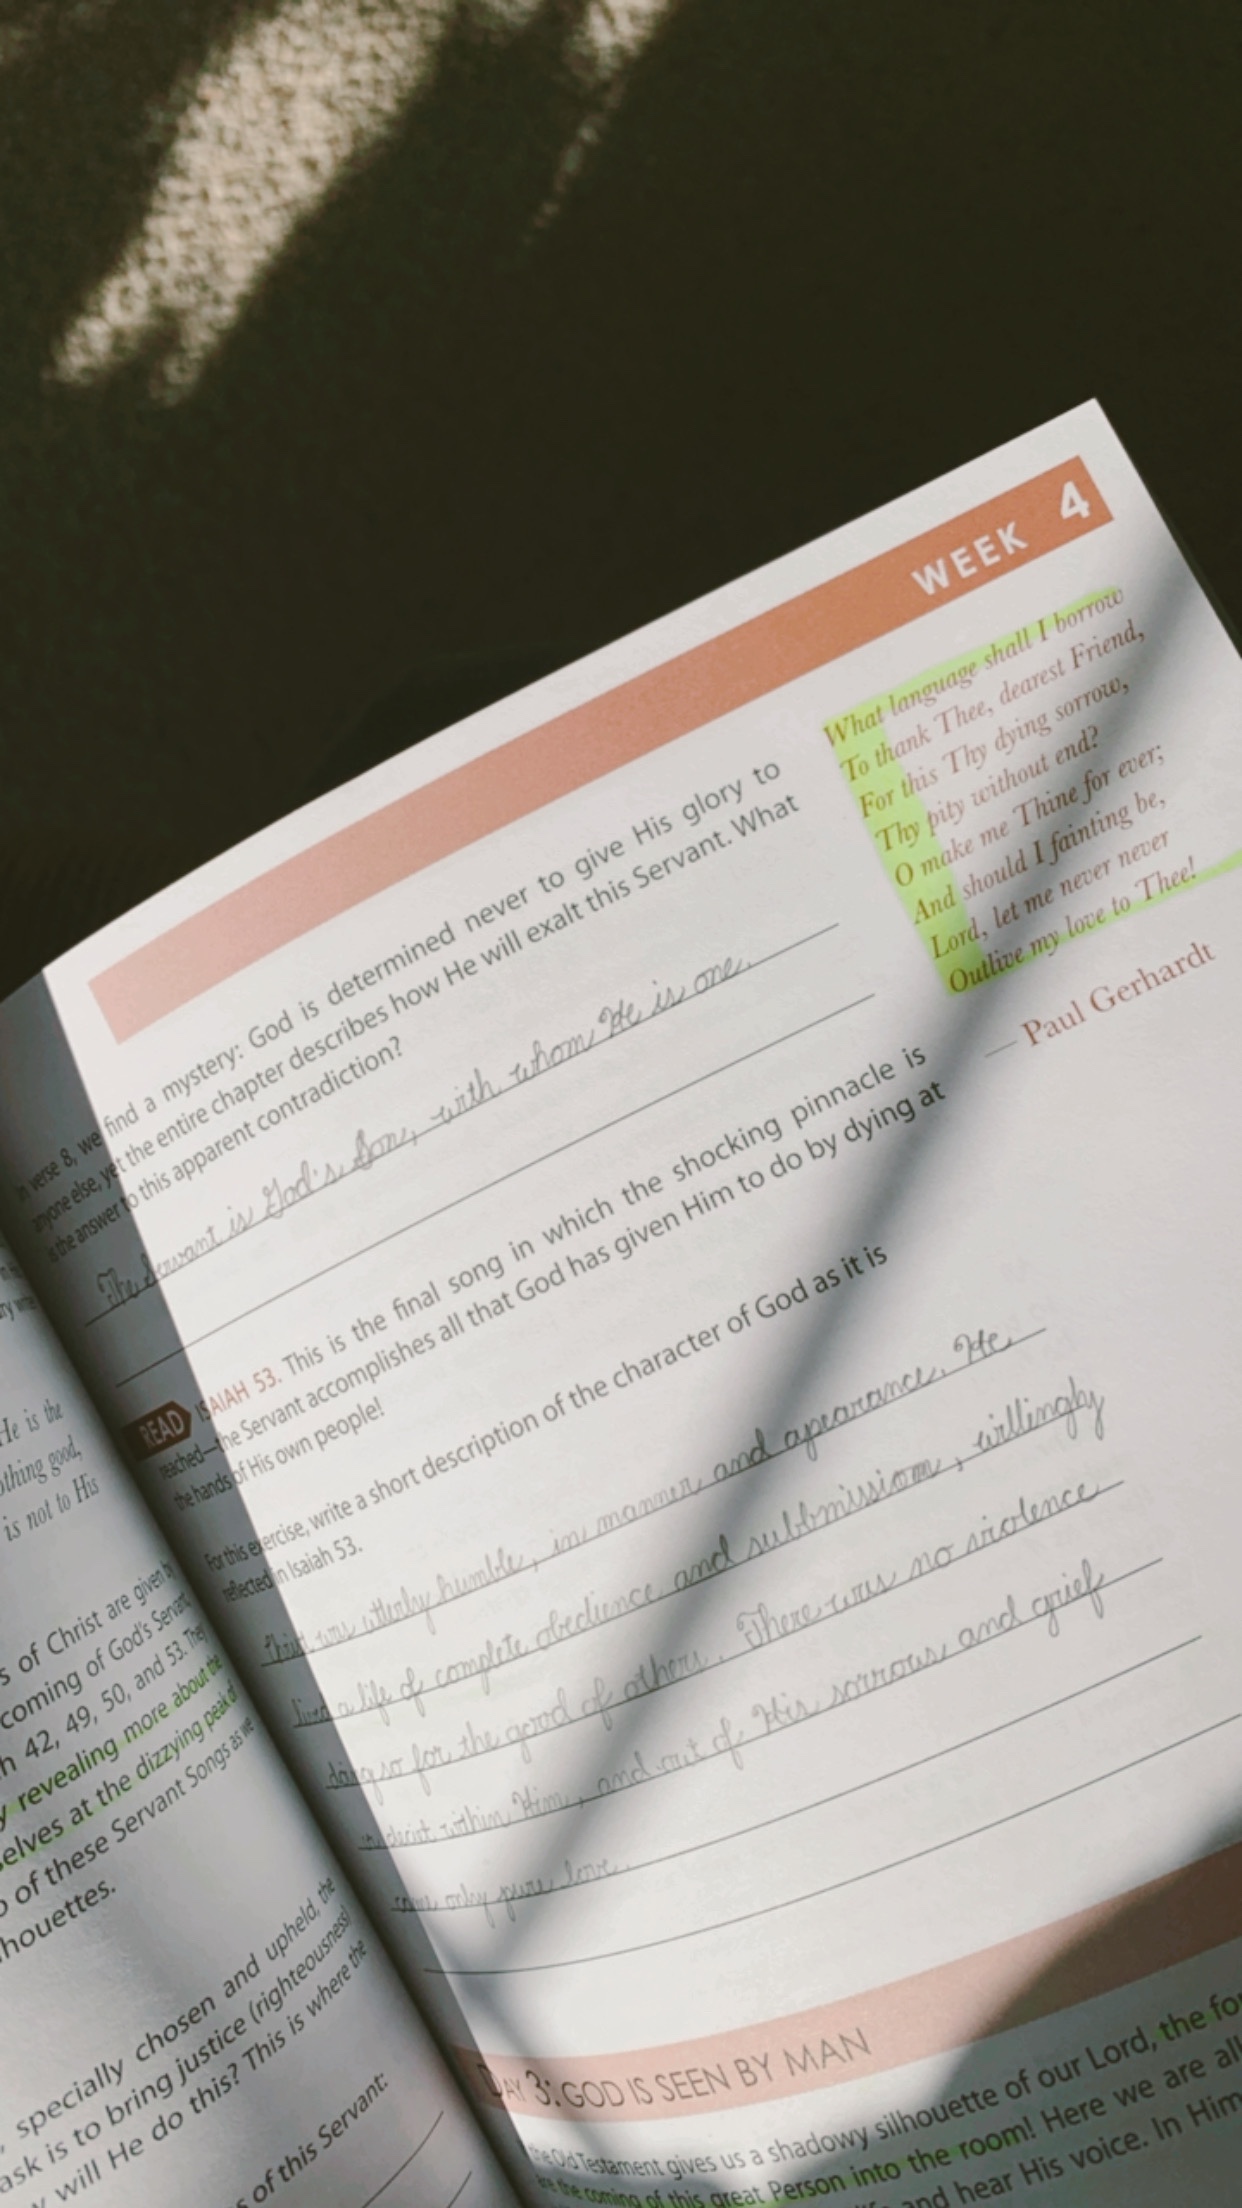 He is the
nothing good,
is not to His
s of Christ are given by
coming of God's Servant
h 42, 49, 50, and 53. They
y revealing more about the
selves at the dizzying peak of
o of these Servant Songs as we
houettes.
, specially chosen and upheld, the
ask is to bring justice (righteousness)
will He do this? This is where the
s of this Servant:
WEEK 4
In verse 8, we find a mystery: God is determined never to give His glory to
anyone else, yet the entire chapter describes how He will exalt this Servant. What
is the answer to this apparent contradiction?
The Servant is God's Son, with whom He is one.
What language shall I borrow
To thank Thee, dearest Friend,
For this Thy dying sorrow,
Thy pity without end?
O make me Thine for ever;
And should I fainting be,
Lord, let me never never
Outlive my love to Thee!
— Paul Gerhardt
READ ISAIAH 53. This is the final song in which the shocking pinnacle is
reached—the Servant accomplishes all that God has given Him to do by dying at
the hands of His own people!
For this exercise, write a short description of the character of God as it is
reflected in Isaiah 53.
was utterly humble, in manner and apearance. He
lived a life of complete obedience and subbmission, willingly
doing so for the good of others. There was no violence
or deciet within Him, and out of His sorrows and grief
came only pure love.
DAY 3: GOD IS SEEN BY MAN
the Old Testament gives us a shadowy silhouette of our Lord, the
are the coming of this great Person into the room! Here we are
and hear His voice. In Him